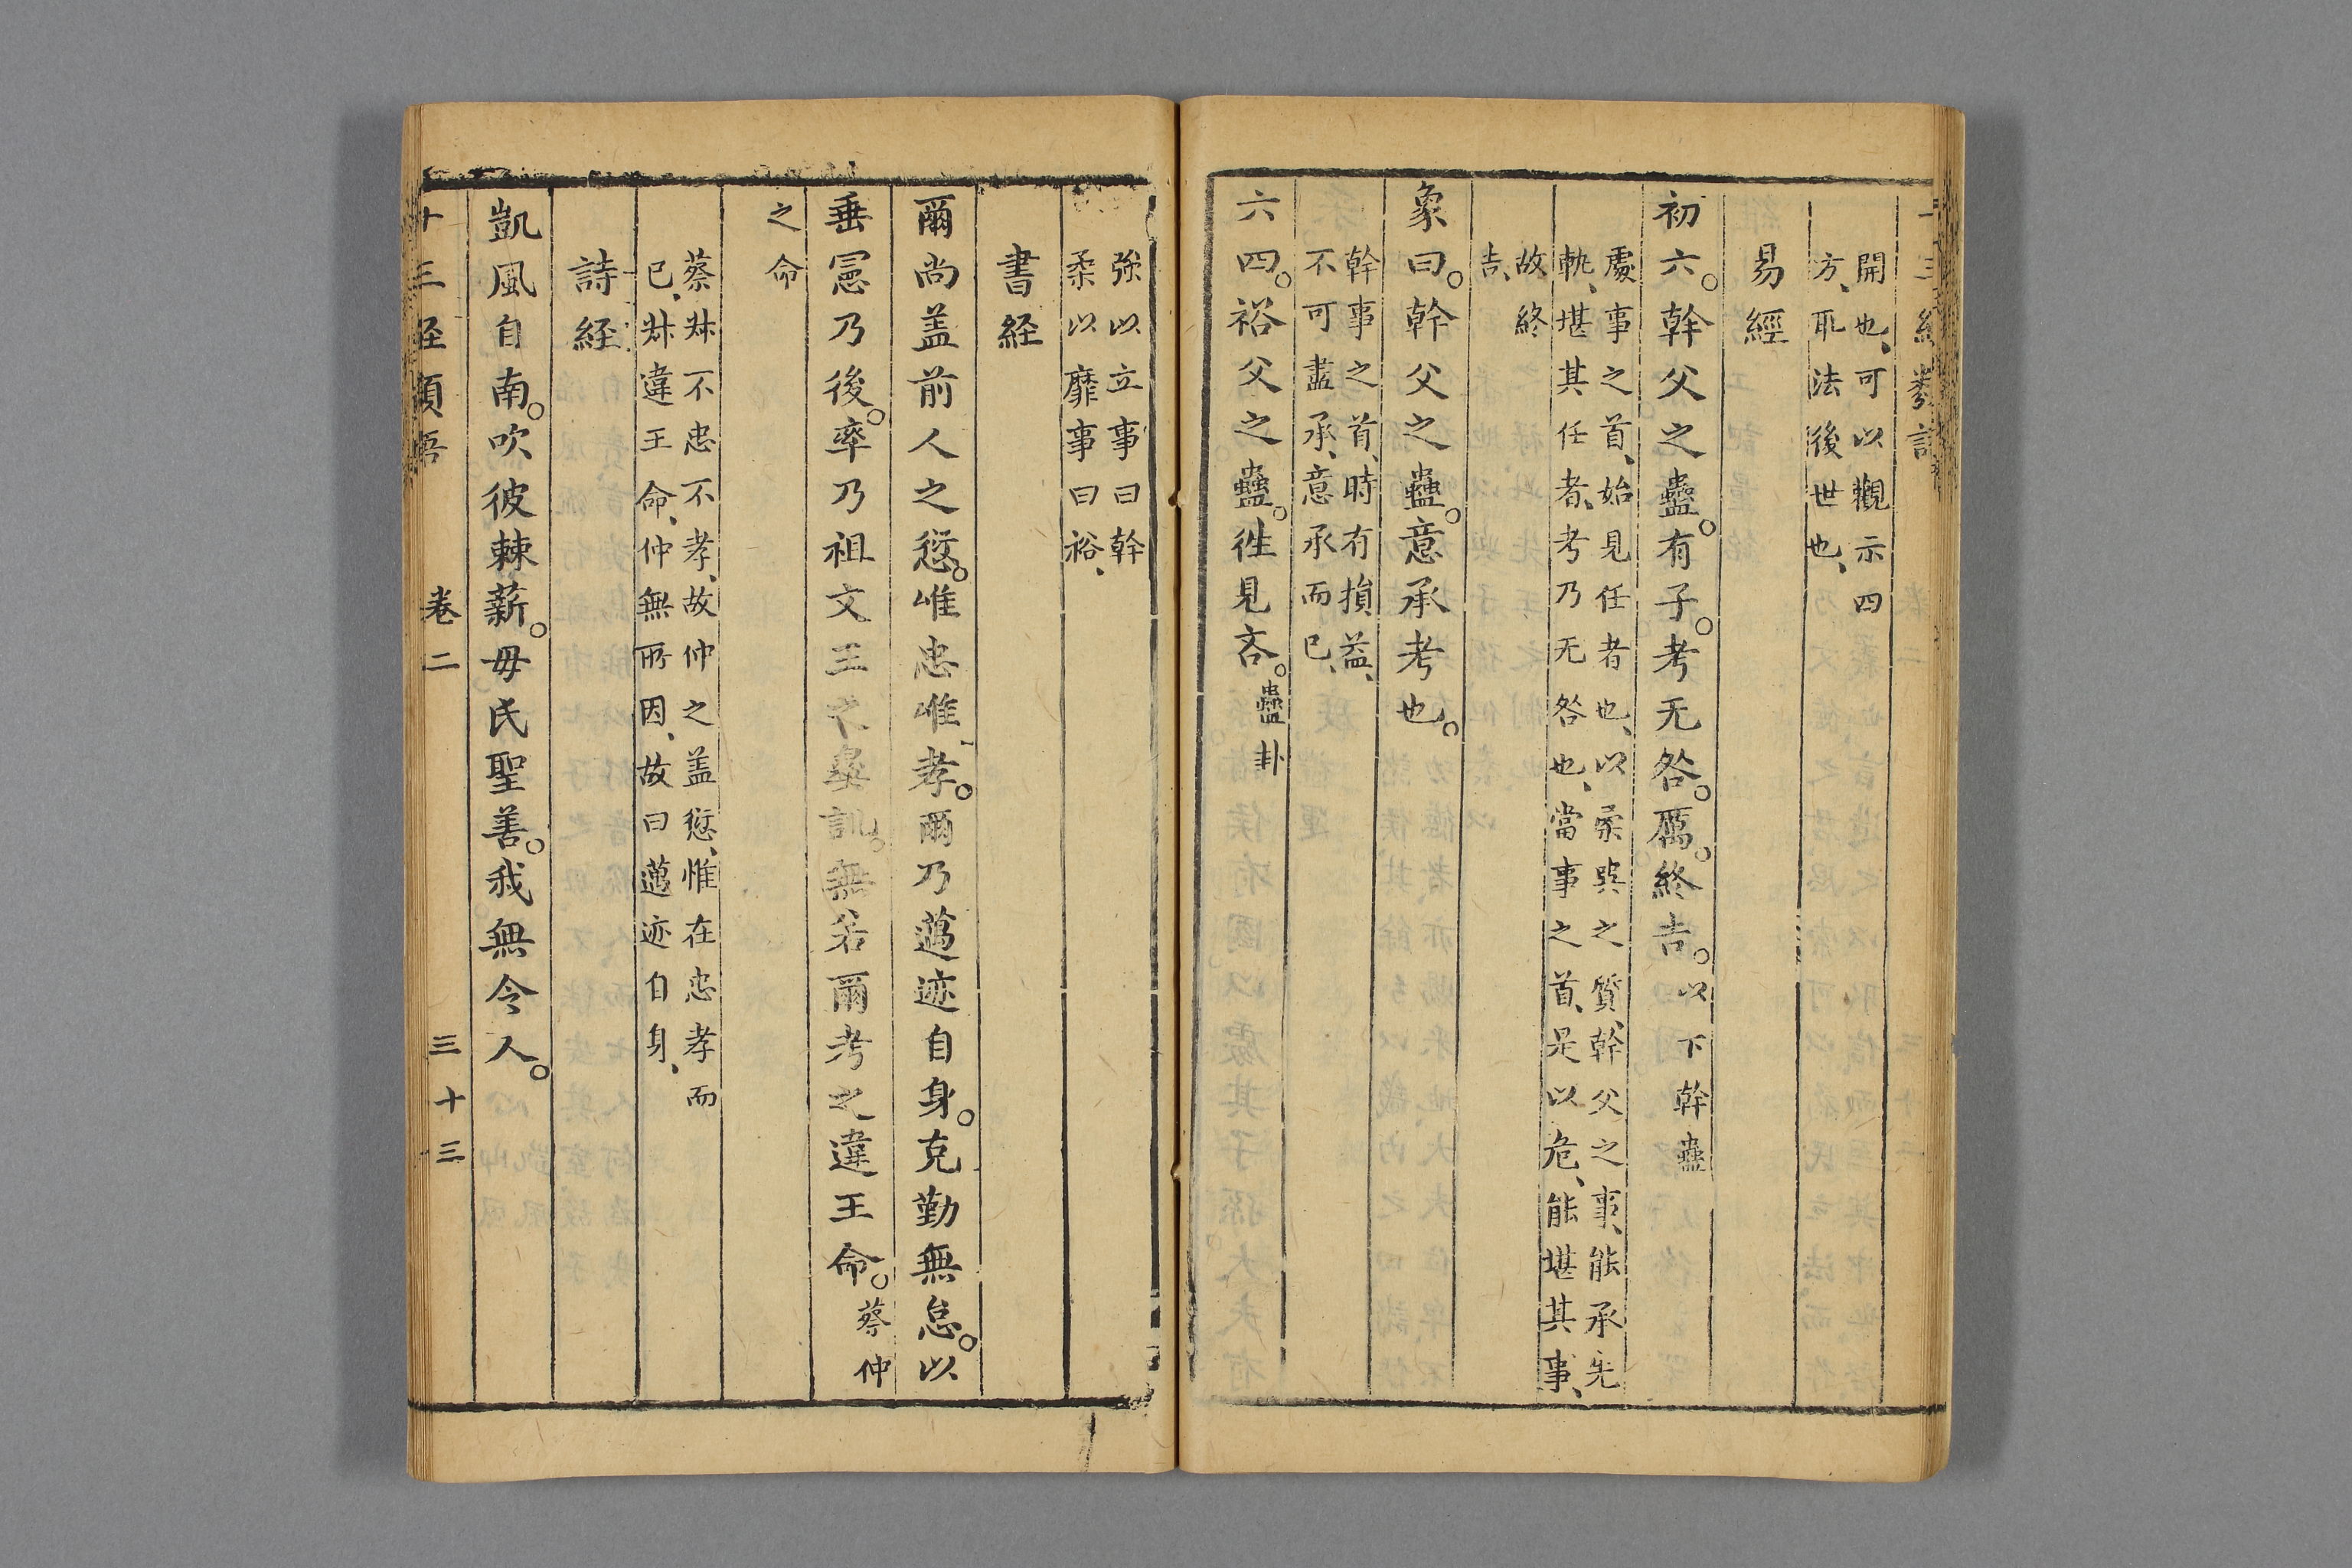 開也、可以觀示四
方、取法後世也、
易經
初六。幹父之蠱。有子。考无咎。厲。終吉。以下幹蠱
處事之首、始見任者也、以柔巽之質、幹父之事、能承先
軌、堪其任者、考乃无咎也、當事之首、是以危、能堪其事、
故終
吉、
象曰。幹父之蠱。意承考也。
幹事之首、時有損益、
不可盡承、意承而已、
六四。裕父之蠱。徃見吝。蠱卦
强以立事曰幹
柔以靡事曰裕、
書経
爾尚盖前人之愆。惟忠惟孝。爾乃邁迹自身。克勤無怠。以
垂憲乃後。率乃祖文王之彝訓。無若爾考之違王命。蔡仲
之命
蔡叔不忠不孝、故仲之盖愆、惟在忠孝而
已、叔違王命、仲無所因、故曰邁迹自身、
詩経
凱風自南。吹彼棘薪。母氏聖善。我無令人。
十三経類語 卷二 三十三